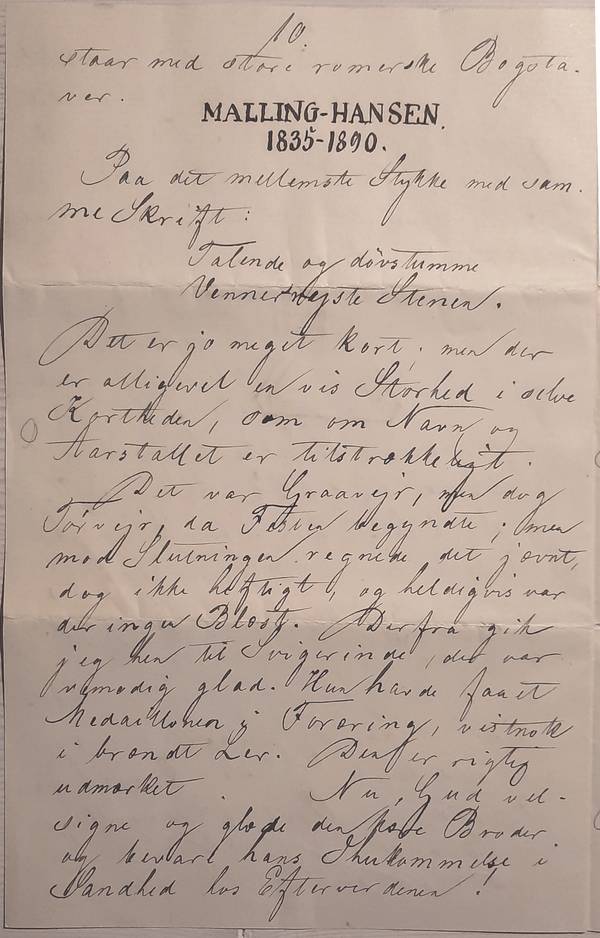 10.
staar med store romerske Bogsta-
ver.
MALLING-HANSEN.
1835-1890.
Paa det mellemste Stykke med sam-
me Skrift:
Talende og døvstumme
Venner rejste Stenen.
Det er jo meget kort, men der
er alligevel en vis Storhed i selve
Kortheden, som om Navn og
Aarstallet er tilstrækkeligt.
Det var Graavejr, men dog
Tørvejr, da Festen begyndte; men
mod Slutningen regnede det jævnt,
dog ikke heftigt, og heldigvis var
der ingen Blæst. Derfra gik
jeg hen til Svigerinde, der var
vemodig glad. Hun havde faaet
Medaillonen i Foræring, vistnok
i brændt Ler. Den er rigtig
udmærket. Nu, Gud vel-
signe og glæde den kære Broder
og bevare hans Ihukommelse i
Sandhed hos Efterverdenen!